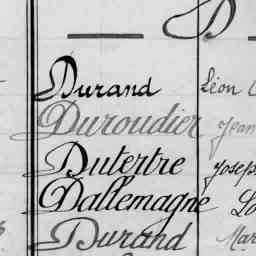 D
Durand Léon
Duroudier Jean
Dutertre Joseph
Dallemagne
Durand